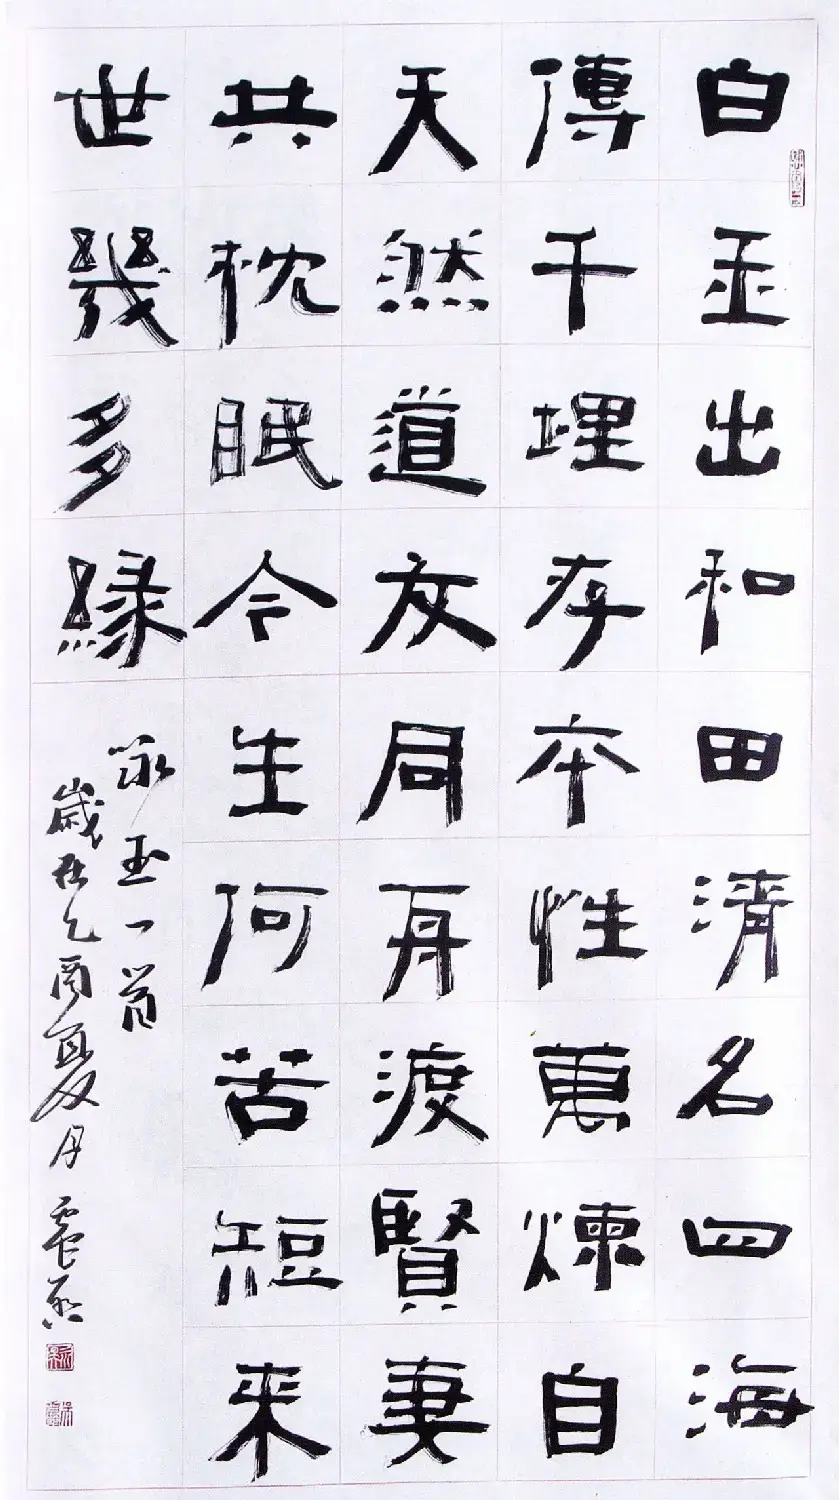 白玉出和田清名四海
傳千埋存本性萬煉自
天然道友同舟渡賢妻
共枕眠今生何苦短来
世幾多緣
咏玉一首
歲在乙酉夏月